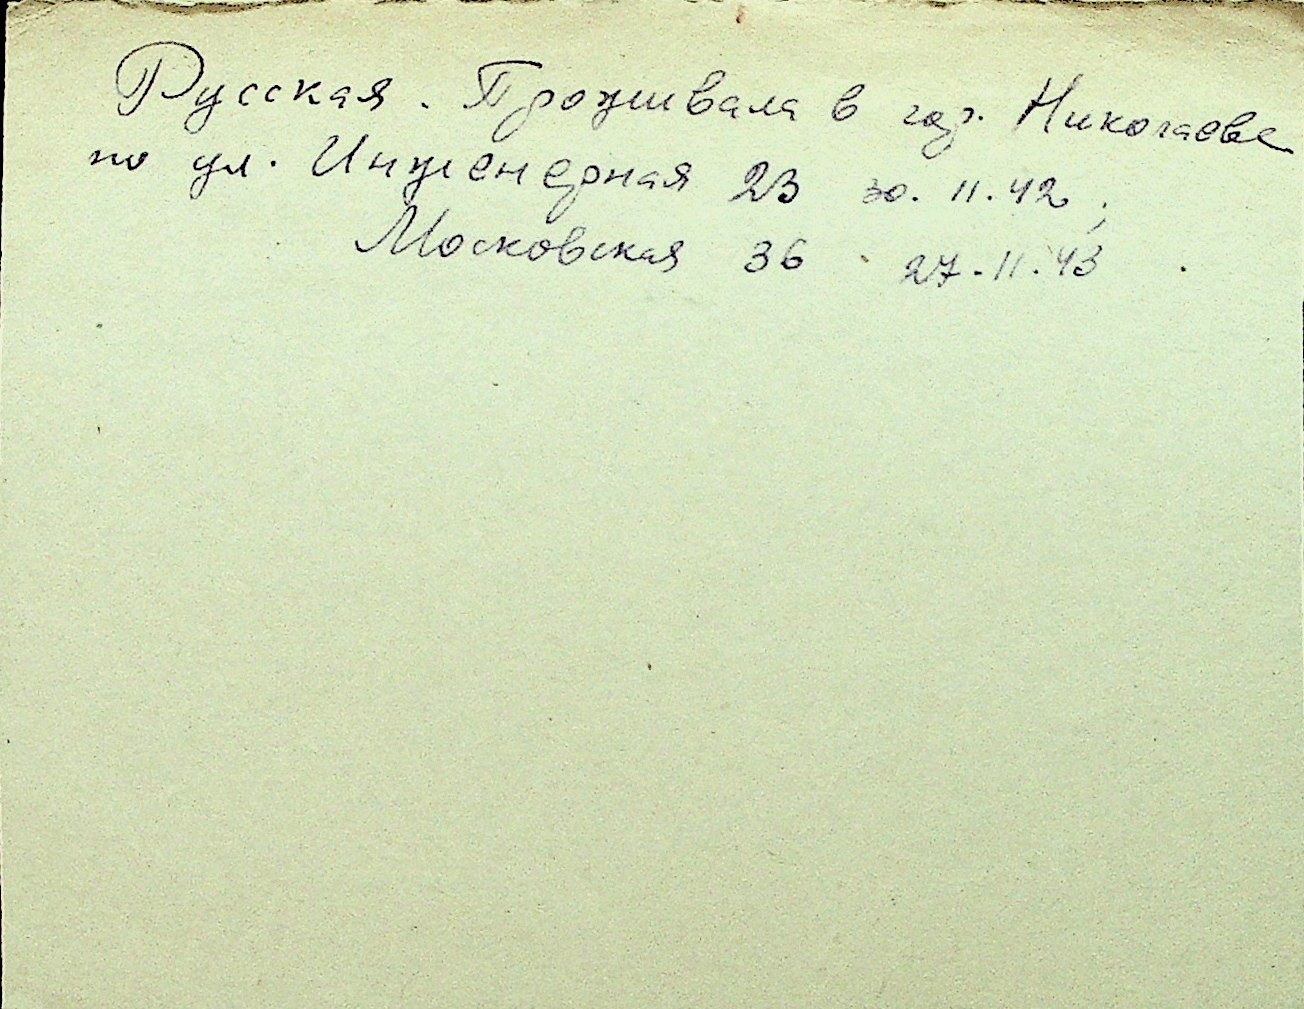 Русская. Проживала в гор. Николаеве
по ул. Инженерная 23 30.11.42,
Московская 36 27.11.43.